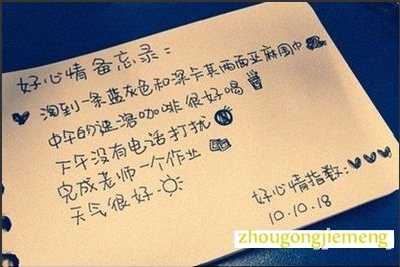 好心情备忘录：
淘到一条蓝灰色和深卡其两面亚麻围巾
中午的速溶咖啡很好喝
下午没有电话打扰
完成老师一个作业
天气很好
好心情指数：
10.10.18
zhougongjiemeng